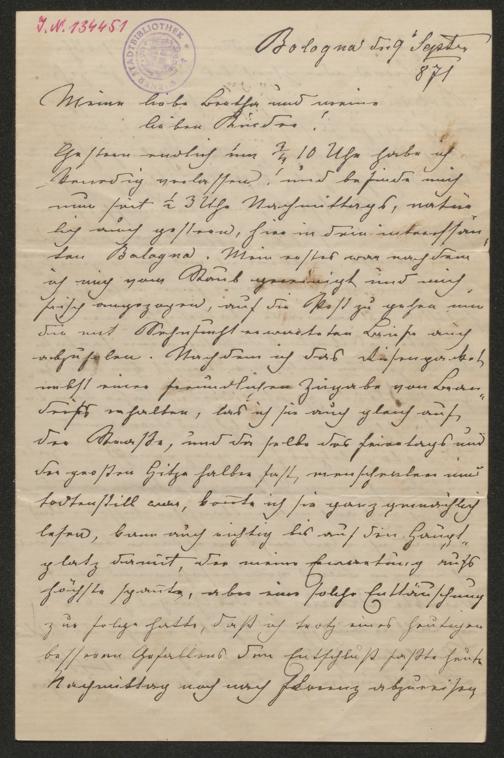 J.N. 134451
STADTBIBLIOTHEK
Bologna den 9t Septr
871
Meine liebe Bertha und meine
lieben Kinder!
Gestern endlich um 3/4 10 Uhr habe ich
Venedig verlassen, und befinde mich
nun seit 1/2 3 Uhr Nachmittags, natür
lich auch gestern, hier in dem interessan„
ten Bologna. Mein erstes war nachdem
ich mich vom Staub gereinigt und mich
frisch angezogen, auf die Post zu gehen um
die mit Sehnsucht erwarteten Briefe auch
abzuholen. Nachdem ich das Riesenpacket
nebst einer freundlichen Zugabe von
erhalten, las ich sie auch gleich auf
der Straße, und da selbe des Feiertags und
der großen Hitze halber fast menschenleer und
todtenstill war, konnte ich sie ganz gemächlich
lesen, kam auch richtig bis auf den Haupt„
platz damit, der meine Erwartung aufs
höchste spannte, aber eine solche Enttäuschung
zur Folge hatte, daß ich trotz eines heutigen
besseren Gefallens den Entschluß faßte heute
Nachmittag noch nach Florenz abzureisen